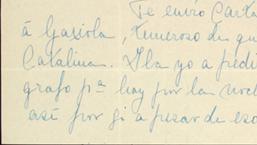 Te envío Carta
á Gasiola, temeroso de qu
Catalina. Iba yo a pedir
grafo pª hoy por la noch
así por si a pesar de eso